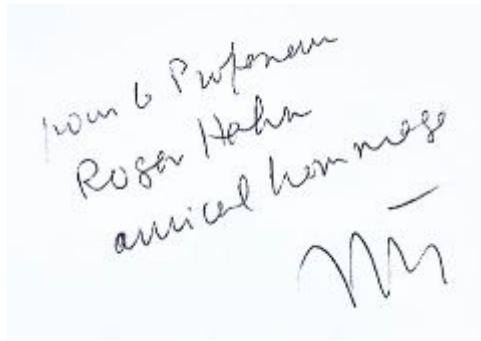 pour le Professeur
Roger Hahn
amical hommage